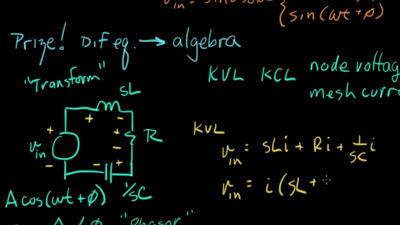 v in = sinusoid
{ sin(ωt + ϕ)
Prize! Dif eq. → algebra
"Transform"
KVL KCL node voltage
mesh curre
sL
+ -
+ +
v in R
- -
- +
1/sC
A cos(ωt + ϕ)
"Phasor"
KVL
v in = sLi + Ri + 1/sC i
v in = i (sL +